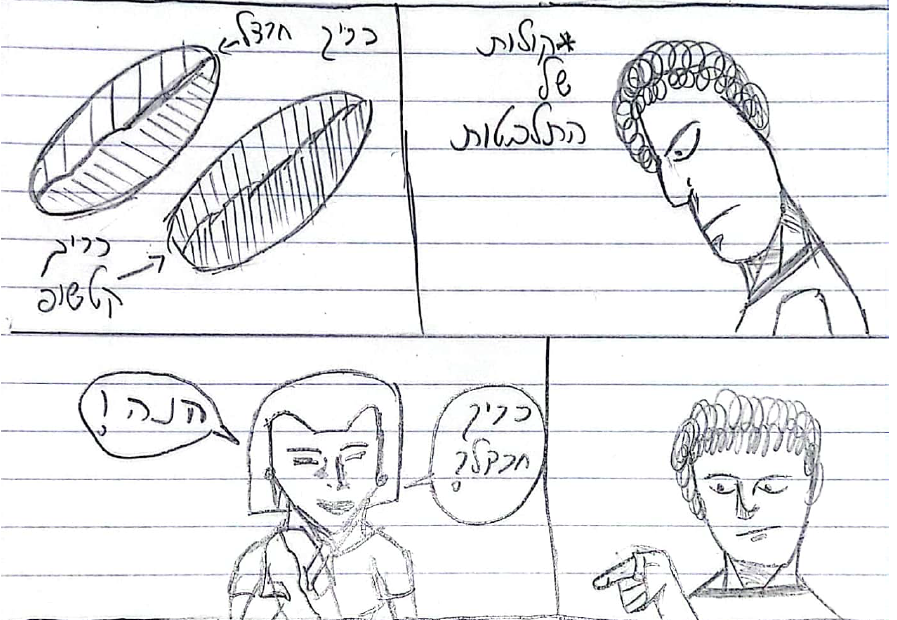 *קולות
של
התלבטות
כריך חרדל
כריך
קטשופ
כריך
חרדל?
הנה!